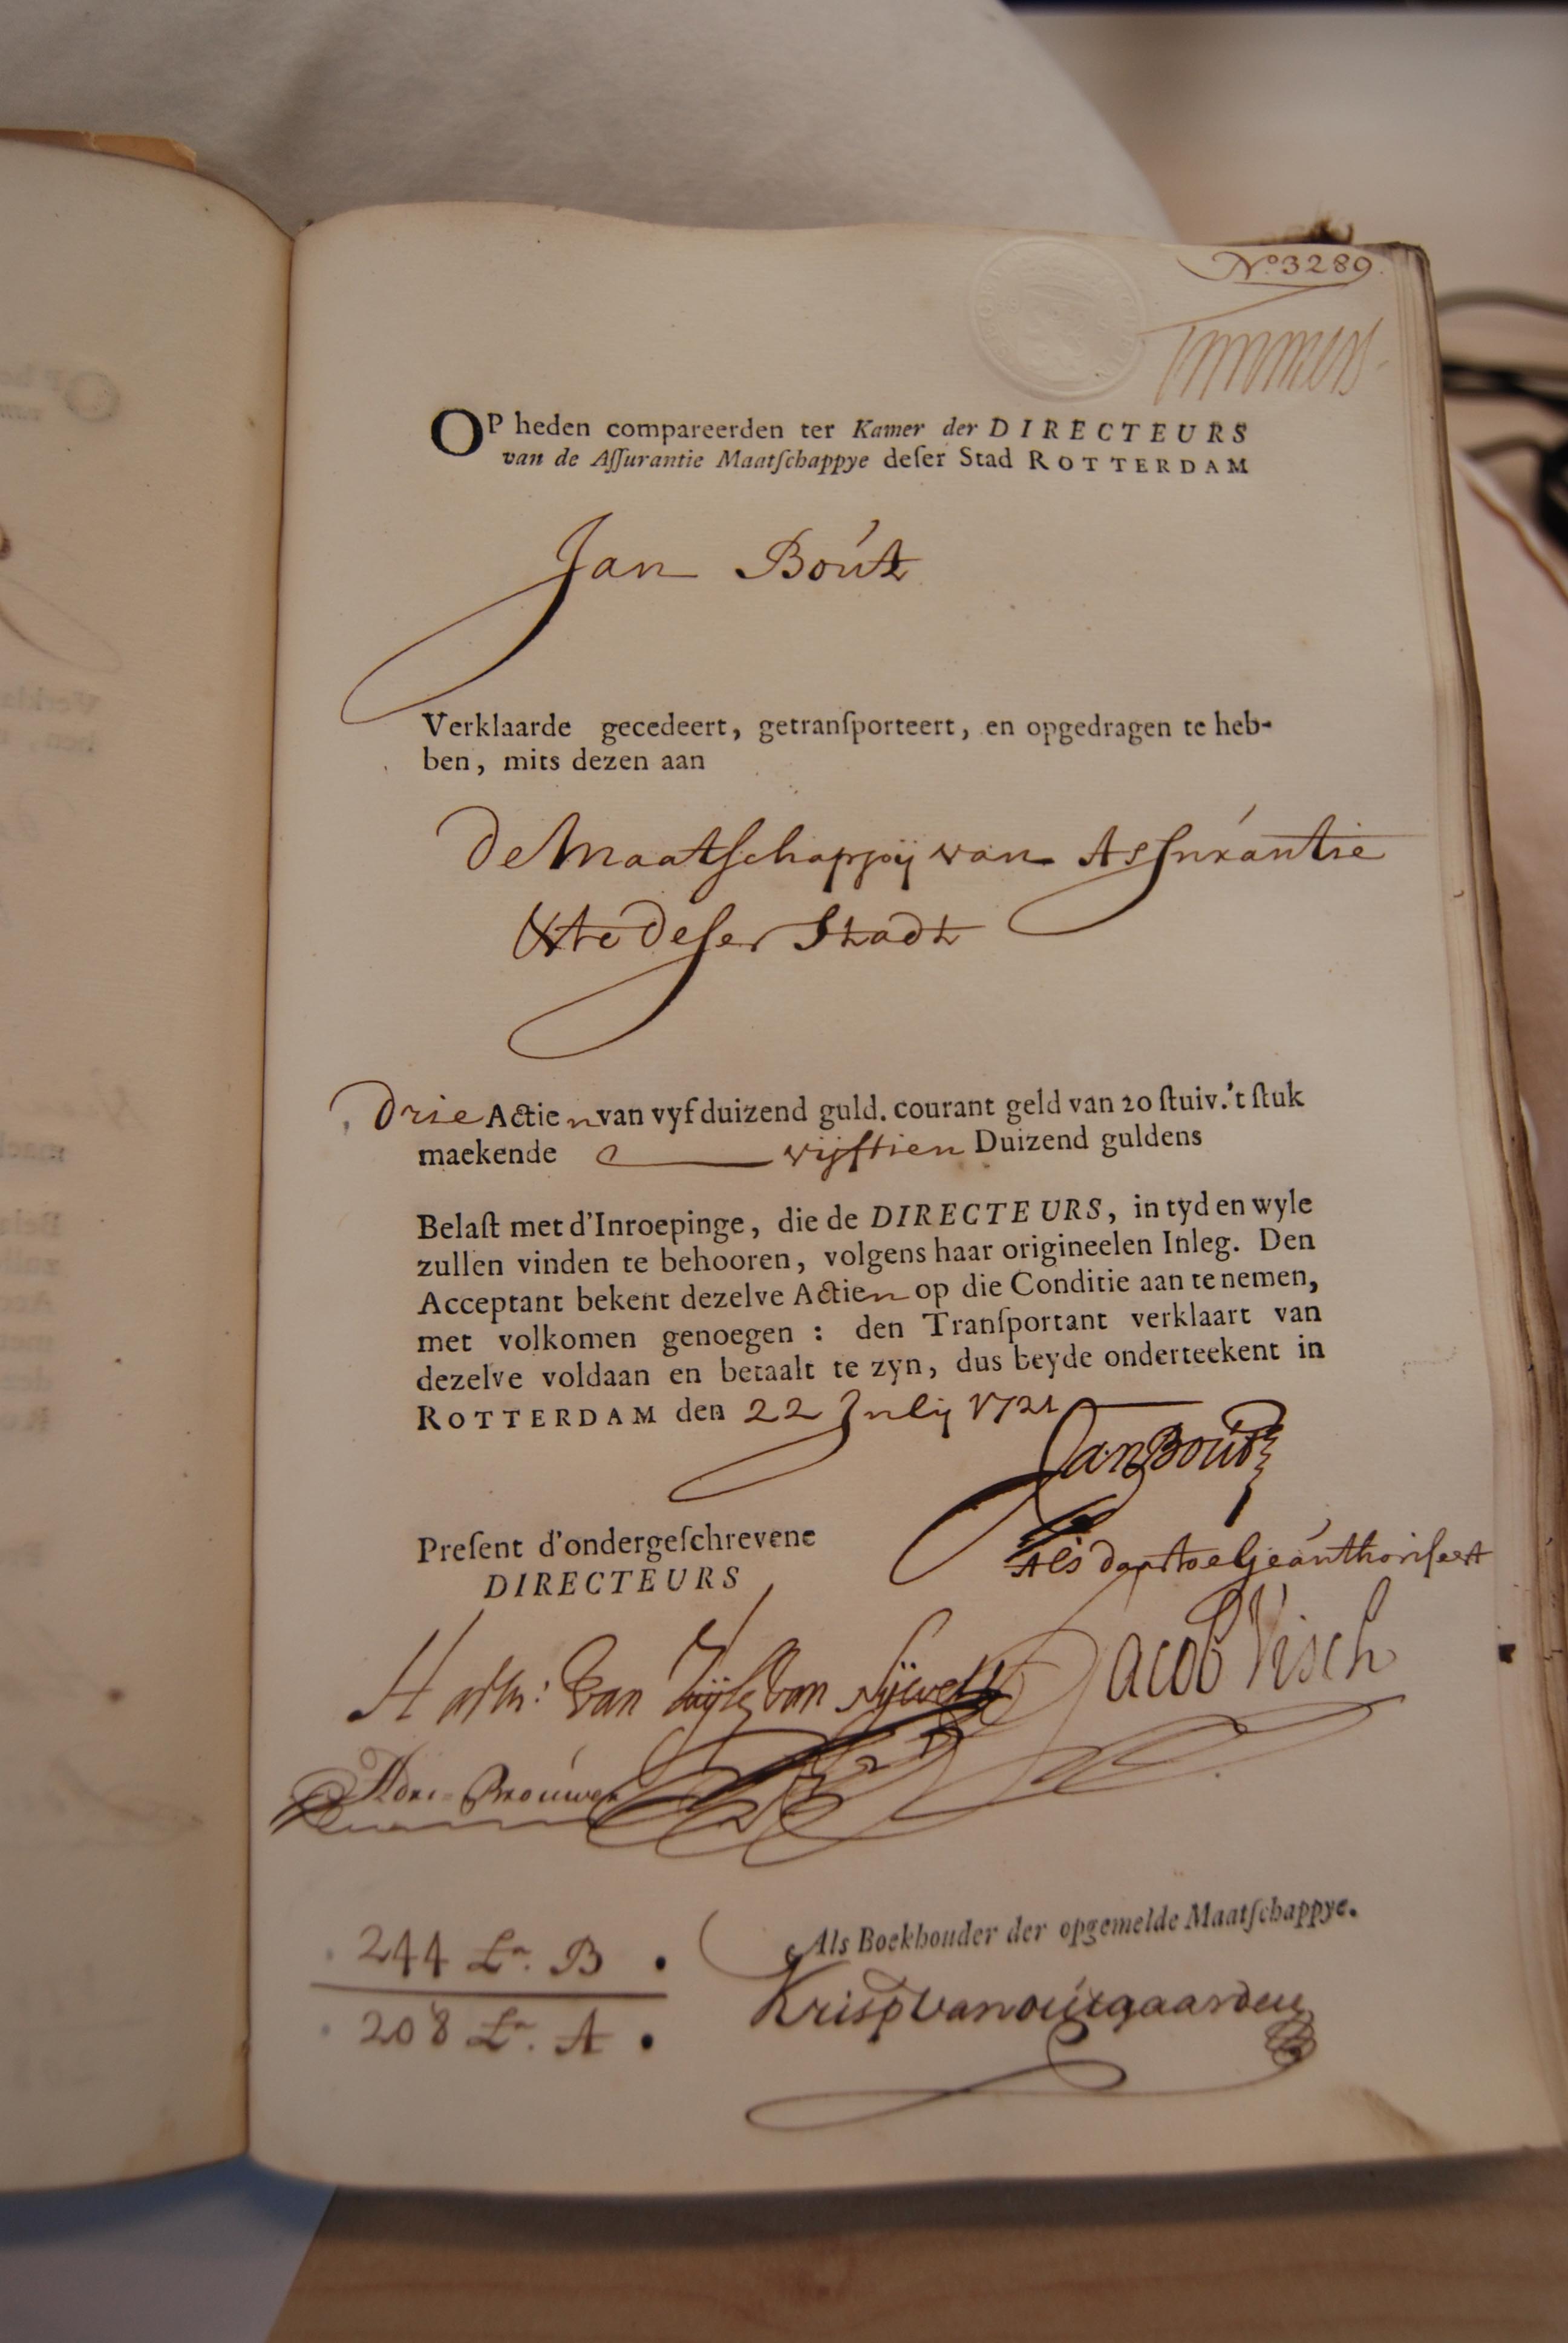 No 3289.
OP heden compareerden ter Kamer der DIRECTEURS
van de Aſſurantie Maatſchappye deſer Stad ROTTERDAM
Jan Boút
Verklaarde gecedeert, getranſporteert, en opgedragen te heb-
ben, mits dezen aan
De Maatſchappij van Asſurantie
&te deſer Stadt
Drie Actien van vyf duizend guld. courant geld van 20 ſtuiv. 't ſtuk
maekende vijftien Duizend guldens
Belaſt met d'Inroepinge, die de DIRECTEURS, in tyd en wyle
zullen vinden te behooren, volgens haar origineelen Inleg. Den
Acceptant bekent dezelve Actien op die Conditie aan te nemen,
met volkomen genoegen : den Tranſportant verklaart van
dezelve voldaan en betaalt te zyn, dus beyde onderteekent in
ROTTERDAM den 22 Julij 1721
Jan Boút
Preſent d'ondergeſchrevene
Als daertoe geáuthoriſeert
DIRECTEURS
Jacob Visch
van Zuÿlen van Nÿevelt
Adri= Broúwer
Als Boekhouder der opgemelde Maatſchappye.
244 La. B.
Krisp van outgaarden
208 La. A.